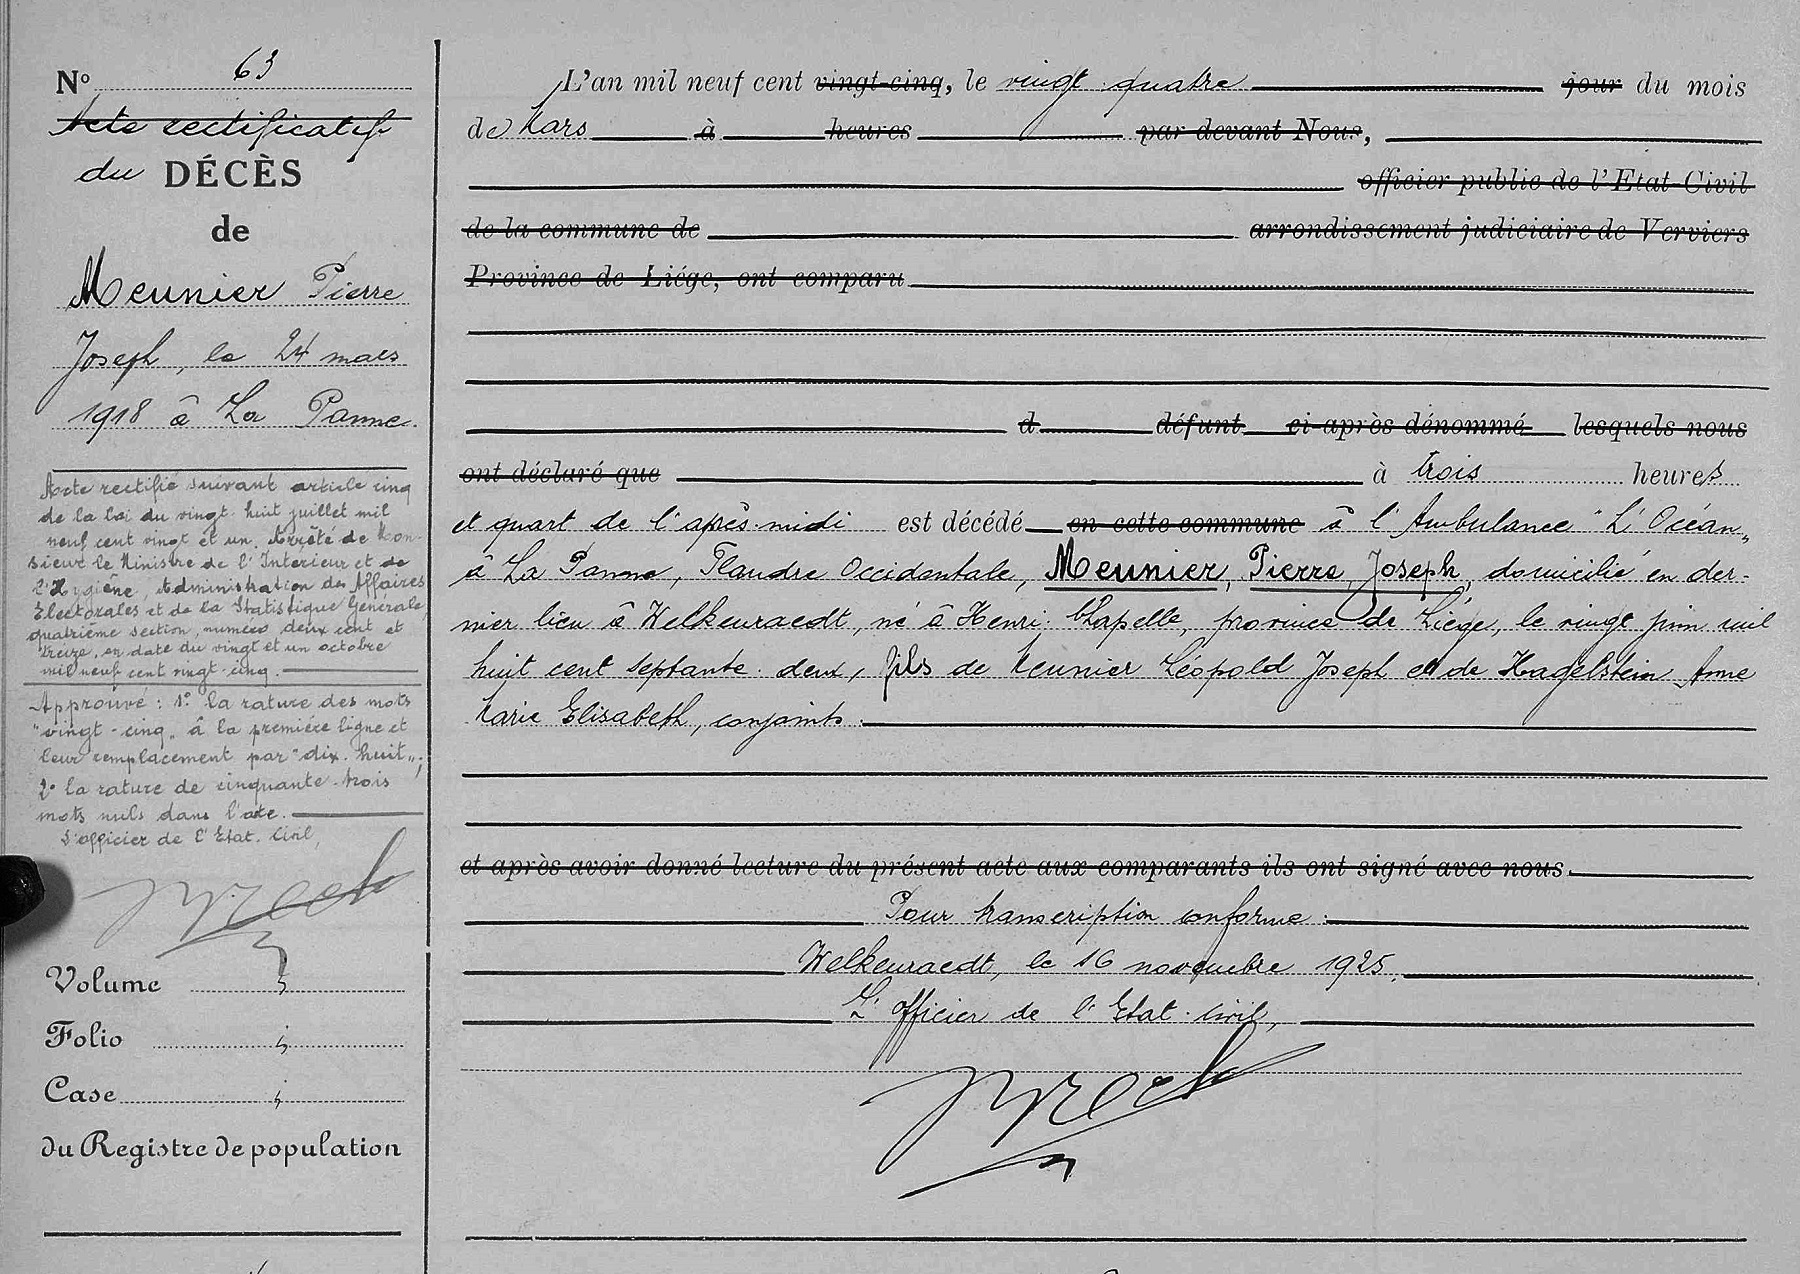 N° 63
Acte rectificatif
du DÉCÈS
de
Meunier Pierre
Joseph, le 24 mars
1918 à La Panne.
Acte rectifié suivant article cinq
de la loi du vingt-huit juillet mil
neuf cent vingt et un. Arrêté de Mon-
sieur le Ministre de l'Intérieur et de
l'Hygiène, Administration des Affaires
Electorales et de la Statistique Générale,
quatrième section, numéro deux cent et
treize, en date du vingt et un octobre
mil neuf cent vingt-cinq.
Approuvé : 1° la rature des mots
"vingt-cinq" à la première ligne et
leur remplacement par "dix-huit";
2° la rature de cinquante-trois
mots nuls dans l'acte.
L'officier de l'Etat-Civil,
Volume
Folio
Case
du Registre de population
L'an mil neuf cent vingt-cinq, le vingt-quatre jour du mois
de Mars à heures par devant Nous,
officier public de l'Etat-Civil
de la commune de arrondissement judiciaire de Verviers
Province de Liége, ont comparu
d défunt ci-après dénommé lesquels nous
ont déclaré que à trois heures
et quart de l'après-midi est décédé en cette commune à l'Ambulance "L'Océan"
à La Panne, Flandre Occidentale, Meunier, Pierre, Joseph, domicilié en der-
nier lieu à Welkenraedt, né à Henri-Chapelle, province de Liége, le vingt juin mil
huit cent septante-deux, fils de Meunier Léopold Joseph et de Hagelstein Anne
Marie Elisabeth, conjoints.
et après avoir donné lecture du présent acte aux comparants ils ont signé avec nous.
Pour transcription conforme :
Welkenraedt, le 16 novembre 1925.
L'officier de l'Etat-Civil,